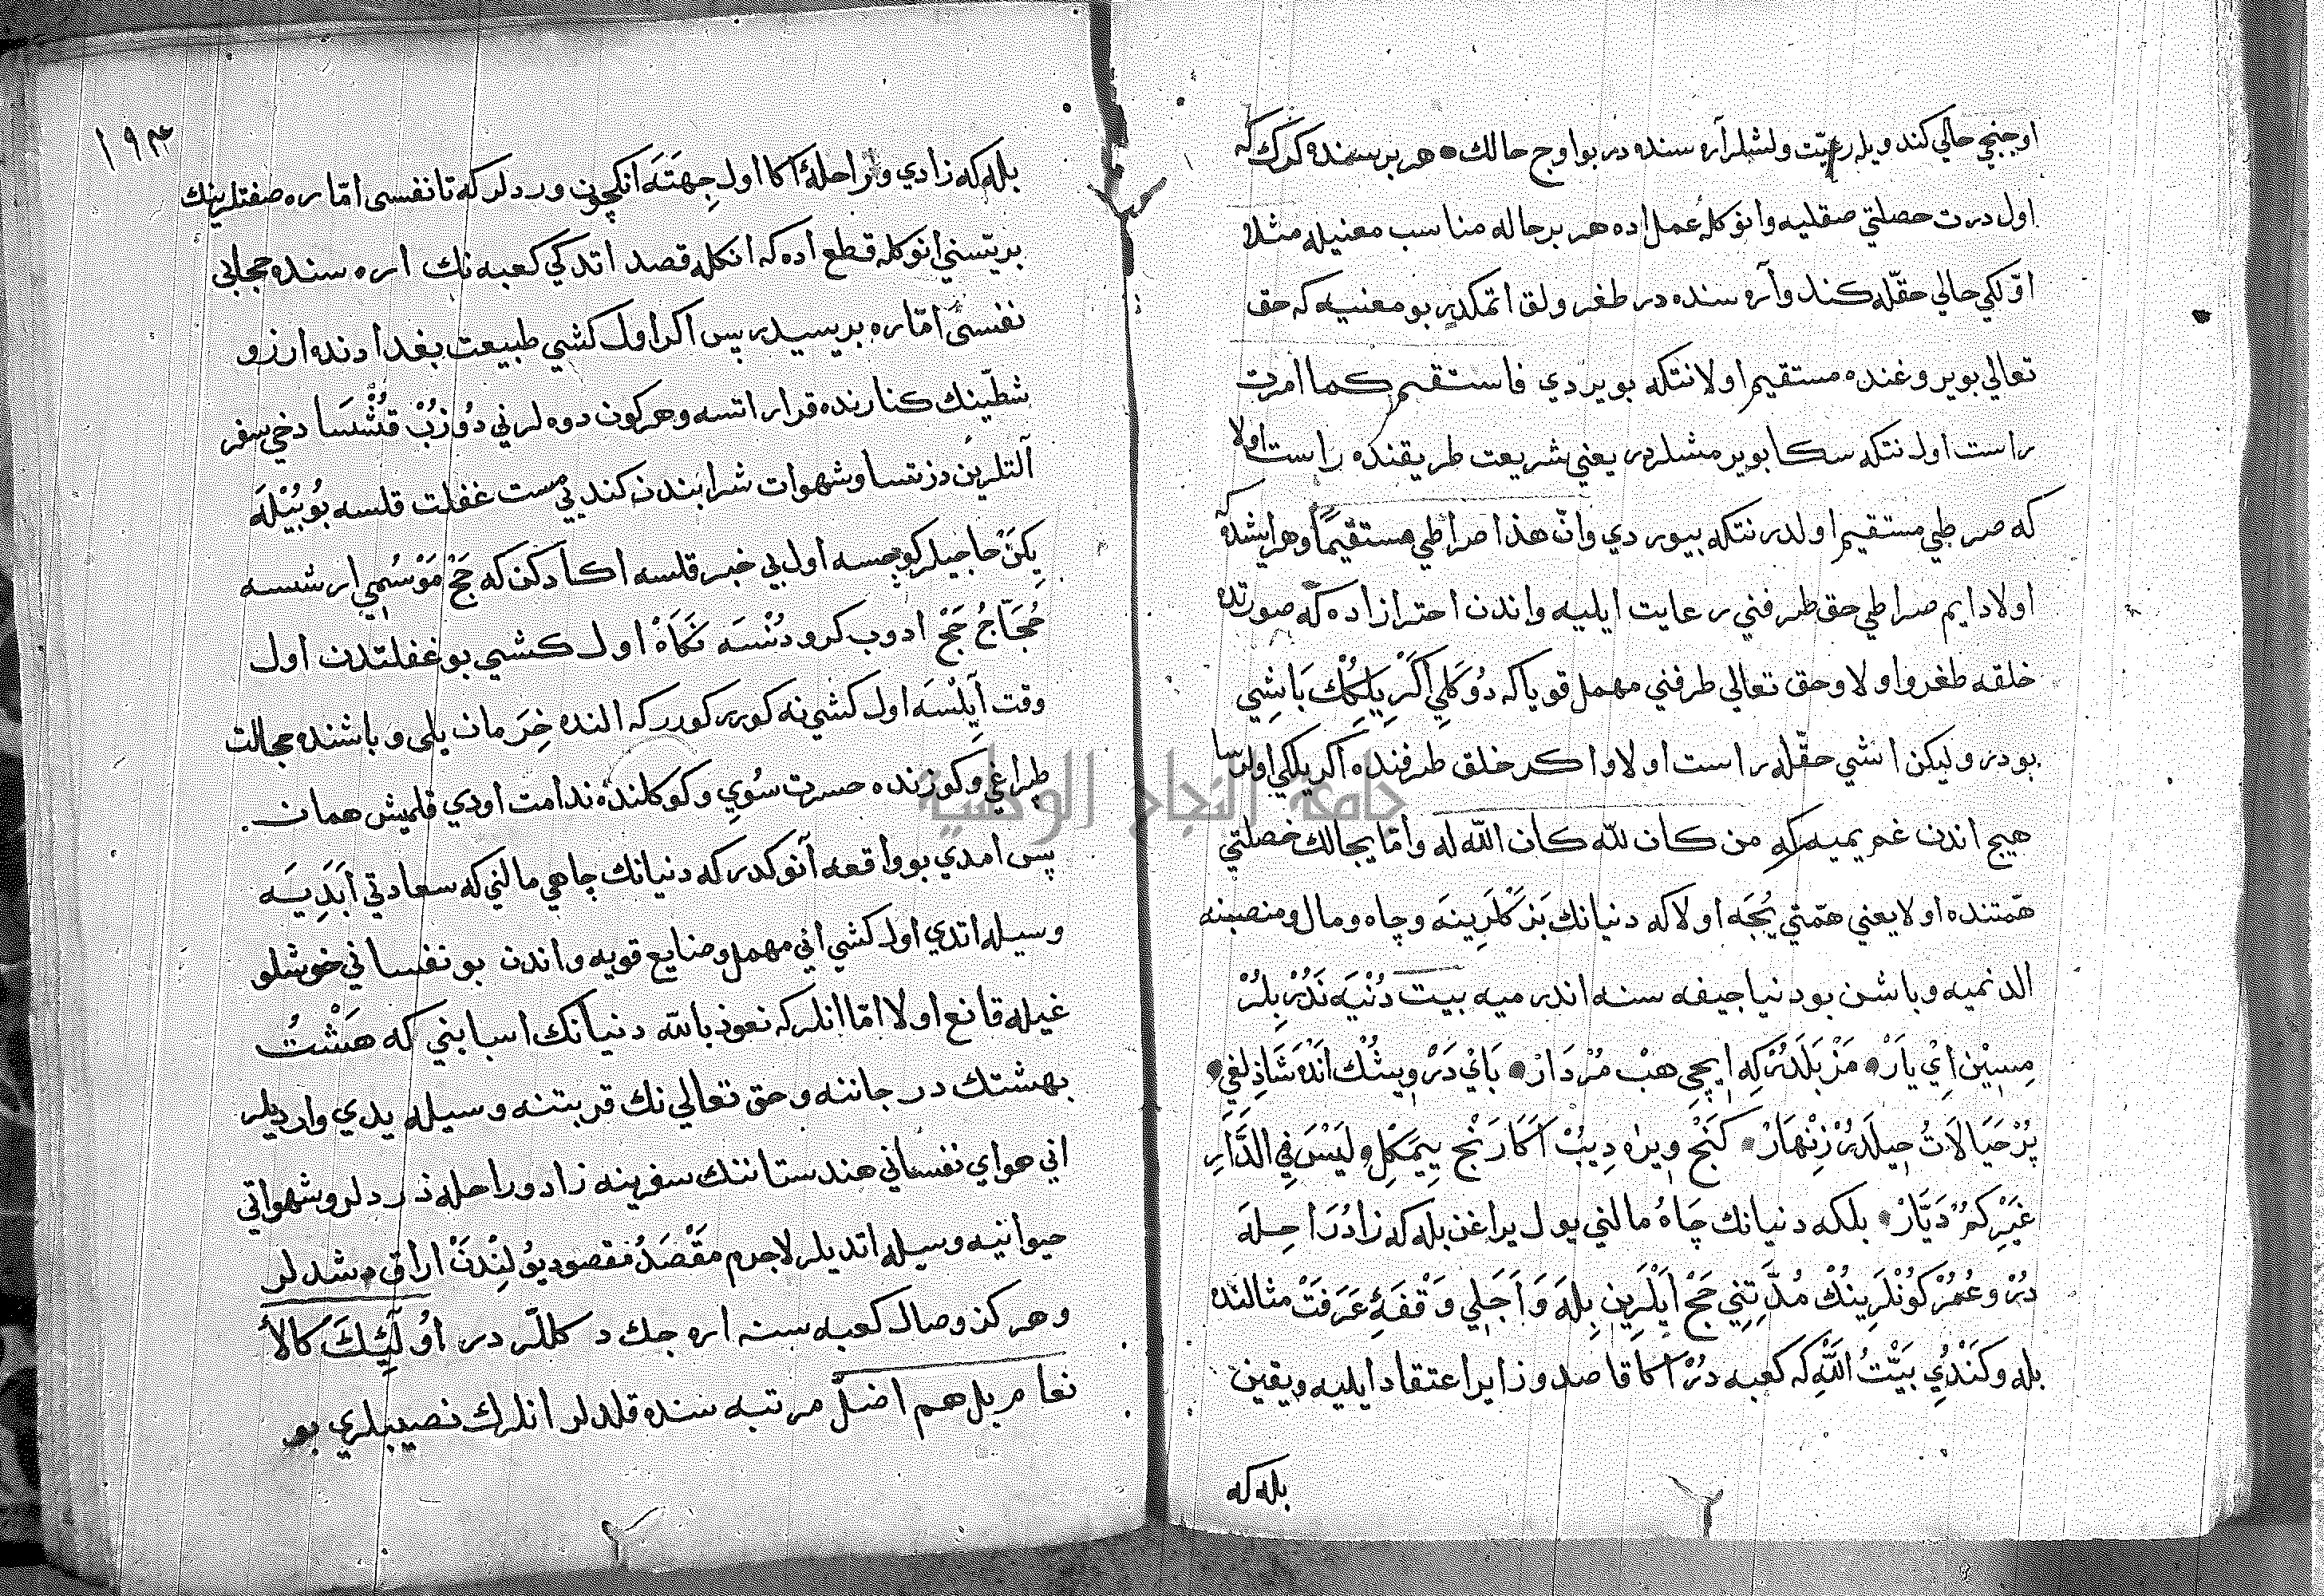 اوجنجي حالي كند ويله رعيّت ولشلر آره سنده در بو اوج حالك هر برسنده كرك كه
اول درت حصلتي صقليه وانوكله عمل اده هر بر حاله مناسب معنيله مثلا
اوّلكي حالي حقّله كند و آره سنده در طغرولق اتمكدر بو معنييه كه حق
تعالي بويروغنده مستقيم اولا نتكه بويردي فاستقم كما امرت
راست اول نتكه سكا بويرمشلردر يعني شريعت طريقنده راست اولا
كه صرطي مستقيم اولدر نتكه بيوردي وانّ هذا صراطي مستقيمًا وهر ايشده
اولا دايم صراطي حق طرفني رعايت ايليه واندن احتراز اده كه صورتده
خلقه طغرو اولا وحق تعالي طرفني مهمل قويا كه دُوكَلِي اَكْرِيلِكُمْك بَاشِي
بودر وليكن اشي حقّله راست اولا واكر خلق طرفنده اكريلكي اولرسا
هيج اندن غم يميه كه من كان لله كان الله له وامّا يجالك خصلتي
همّتنده اولا يعني همّتي يُجَه اولا كه دنيانك بَزَكْلَرِينَه وچاه ومال ومنصبنه
الدنميه وباشن بو دنيا جيفه سنه اندرميه بيت دُنْيَه نَدُرْ بِلُرْ
مِسِيْن اِيْ يَارْ مَزْبَلَدُرْ كِه اِيچِي هبْ مُرْدَارْ بَايْ دَرْوِيشُكْ اَنْدَه شَاذِلغِي
پُرْ حَيَالاَتُ حِيلَدُرْ زِنْهَارْ كَنجْ ويرَه دِيبْ اَكَا رَنجْ ييمَكِل لَيْسَ فِي الدَّارِ
غَيْرِكُمْ دَيَّارْ بلكه دنيانك چَاهُ مالني يول يراغن بله كه زادُ رَاحِلَه
دُرْ وعُمُرْ كُونْلَرِينُكْ مُدَّتِنِي حَجْ اَيْلَرِين بِلَه وَاَجَلِي وَقْفَهِٔ عَرَفَتْ مثالنده
بله وكَنْدُيِ بَيْتُ اللَّهِ كه كعبه دُرْ اكا قاصد وزاير اعتقاد ايليه ويقين
بله كه
١٩٣
بله كه زادي و راحلهٔ اكا اول جِهَتَه انكچون وردلر كه تا نفسى امّاره صفتلرينك
بريّتسني انوكله قطع اده كه انكله قصد اتدكي كعبه نك اره سنده حجابي
نفسى امّاره بريسيدر پس اكر اول كشي طبيعت بغدادنده ارزو
شطّينك كنارنده قرار اتسه وهر كون دوه لرني دُوزُبْ قُشْسَا دخي سفر
آلتلرين دزتسا وشهوات شرابندن كنديي مست غفلت قلسه بُو بُيْلَه
يِكَنْ حاجيلر كوچسه اول بي خبر قلسه اكا دكن كه حَجْ مَوْسُمِي ارشسه
حُجَّاجُ حَجْ ادوب كرو دُنْسَه نَكَاهْ اول كشي بو غفلتدن اول
وقت آيِلْسَه اول كشي نه كورر كورر كه النده خِرمان يلى و باشنده حجالت
طپراغي وكوزنده حسرت سُويِ وكوكلنده ندامت اودي قلميش همان
پس امدي بو واقعه آنوكدر كه دنيانك چاهي مالني كه سعادتي اَبَدِيَه
وسيله اتدي اول كشي اني مهمل وضايع قويه واندن بو نفساني خوشلو
غيله قانع اولا امّا انلر كه نعوذ بالله دنيانك اسبابني كه هَشْتُ
بهشتك درجاننه وحق تعالي نك قربتنه وسيله يدي وارديلر
اني هواي نفساني هندستاننك سفرينه زاد وراحله ذردلر وشهواتي
حيوانيه وسيله اتديلر لاجرم مقْصَدُ مقصود يوُلِنْدَنْ اراق دشدلر
وهر كز وصال كعبه سنه اره جك دكللّر در اوُلَئِكَ كالأ
نعام بل هم اضلّ مرتبه سنده قلدلر انلرك نصيبلري بو